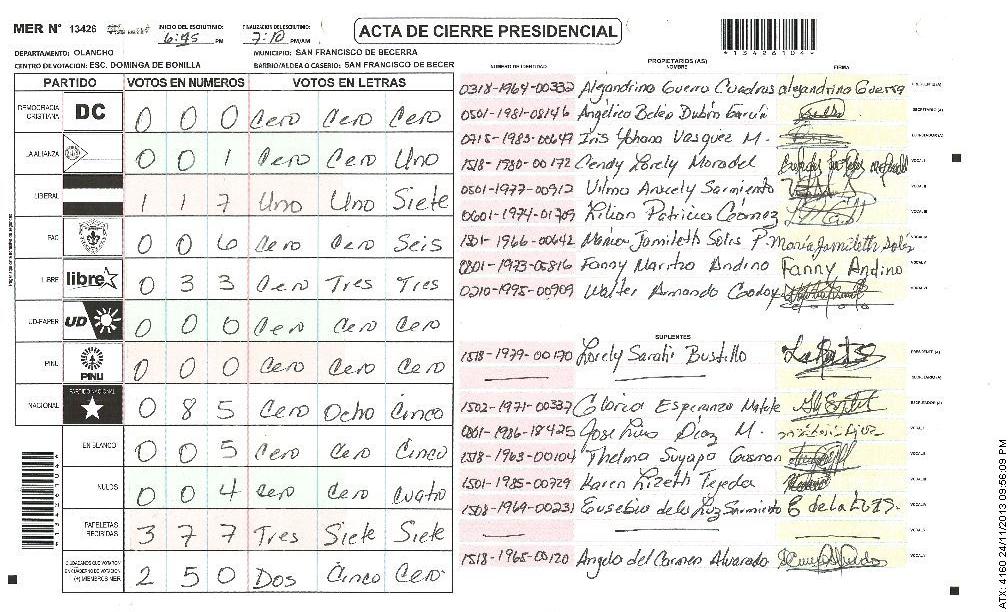 MER N° 13426 INICIO DEL ESCRUTINIO: 6:45 PM FINALIZACION DEL ESCRUTINIO: 7:10 PM/AM ACTA DE CIERRE PRESIDENCIAL
DEPARTAMENTO: OLANCHO MUNICIPIO: SAN FRANCISCO DE BECERRA
CENTRO DE VOTACION: ESC. DOMINGA DE BONILLA BARRIO/ALDEA O CASERIO: SAN FRANCISCO DE BECER
PARTIDO VOTOS EN NUMEROS VOTOS EN LETRAS
DEMOCRACIA CRISTIANA DC 0 0 0 Cero Cero Cero
LA ALIANZA 0 0 1 Cero Cero Uno
LIBERAL 1 1 7 Uno Uno Siete
PAC 0 0 6 Cero Cero Seis
LIBRE libre 0 3 3 Cero Tres Tres
UD-FAPER UD 0 0 0 Cero Cero Cero
PINU PINU 0 0 0 Cero Cero Cero
NACIONAL PARTIDO NACIONAL 0 8 5 Cero Ocho Cinco
EN BLANCO 0 0 5 Cero Cero Cinco
NULOS 0 0 4 Cero Cero Cuatro
PAPELETAS RECIBIDAS 3 7 7 Tres Siete Siete
CIUDADANOS QUE VOTARON EN CUADERNO DE VOTACION (+) MIEMBROS MER 2 5 0 Dos Cinco Cero
PROPIETARIOS (AS)
NUMERO DE IDENTIDAD NOMBRE FIRMA
0318-1964-00332 Alejandrina Guerra Cuadras alejandrina Guerra PRESIDENTE (A)
0501-1981-08146 Angélica Belén Dubón García SECRETARIO (A)
0715-1983-00649 Iris Yohana Vasquez M. ESCRUTADOR (A)
1518-1980-00172 Cendy Lorely Moradel VOCAL I
0501-1977-00912 Vilma Aracely Sarmiento VOCAL II
0601-1974-01709 Lilian Patricia Gómez VOCAL III
1501-1966-00642 María Jamileth Soles P. María Jamileth Soles VOCAL IV
0801-1973-05816 Fanny Maritza Andino Fanny Andino VOCAL V
0210-1995-00909 Walter Armando Godoy
SUPLENTES
1518-1979-00170 Lorely Sarahi Bustillo PRESIDENTE (A)
SECRETARIO (A)
1502-1971-00337 Gloria Esperanza ESCRUTADOR (A)
0801-1986-18425 Jose Luis Diaz M. VOCAL I
1518-1963-00104 Thelma Suyapa Guzman VOCAL II
1501-1985-00729 Karen Lizeth Tejeda VOCAL III
1508-1969-00231 Eusebio de la Luz Sarmiento E de la Luz S. VOCAL IV
VOCAL V
1518-1965-00120 Angela del Carmen Alvarado
ATX: 4160 24/11/2013 09:56:09 PM